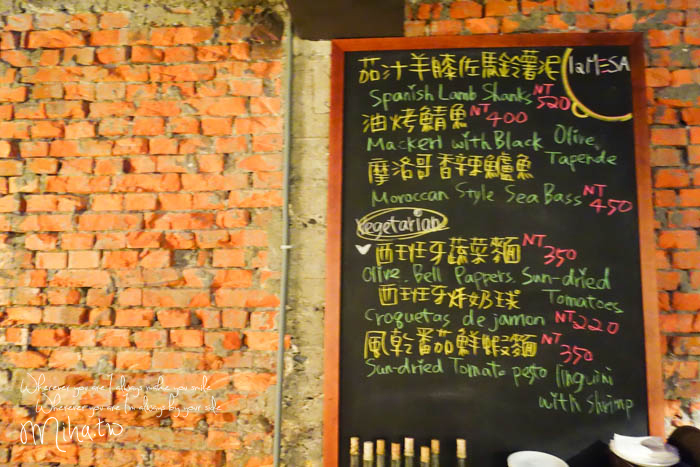 茄汁羊膝佐馬鈴薯泥
laMESA
Spanish Lamb Shanks NT 520
油烤鯖魚 NT 400
Mackerl with Black Olive,
Tapende
摩洛哥香辣鱸魚
Moroccan Style Sea Bass NT 450
Vegetarian
西班牙蔬菜麵 NT 350
Olive, Bell Pappers, Sun-dried
Tomatoes
西班牙炸奶球
Croquetas de jamon NT 220
風乾番茄鮮蝦麵 NT 350
Sun-dried Tomato pesto linguini
with Shrimp
Wherever you are I always make you smile
Wherever you are I'm always by your side
Miha.tw